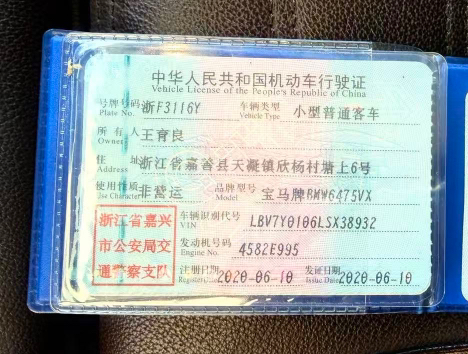 中华人民共和国机动车行驶证
Vehicle License of the People's Republic of China
号牌号码 浙FF3116Y 车辆类型 小型普通客车
Plate No. Vehicle Type
所有人 王育良
住址 浙江省嘉善县天凝镇欣杨村塘上6号
Address
使用性质 非营运 品牌型号 宝马牌BMW6475VX
Use Character
浙江省嘉兴
市公安局交
通警察支队
车辆识别代号 LBV7Y0106LSX38932
VIN
发动机号码 4582E995
Engine No.
注册日期 2020-06-10 发证日期 2020-06-10
Register Issue Date